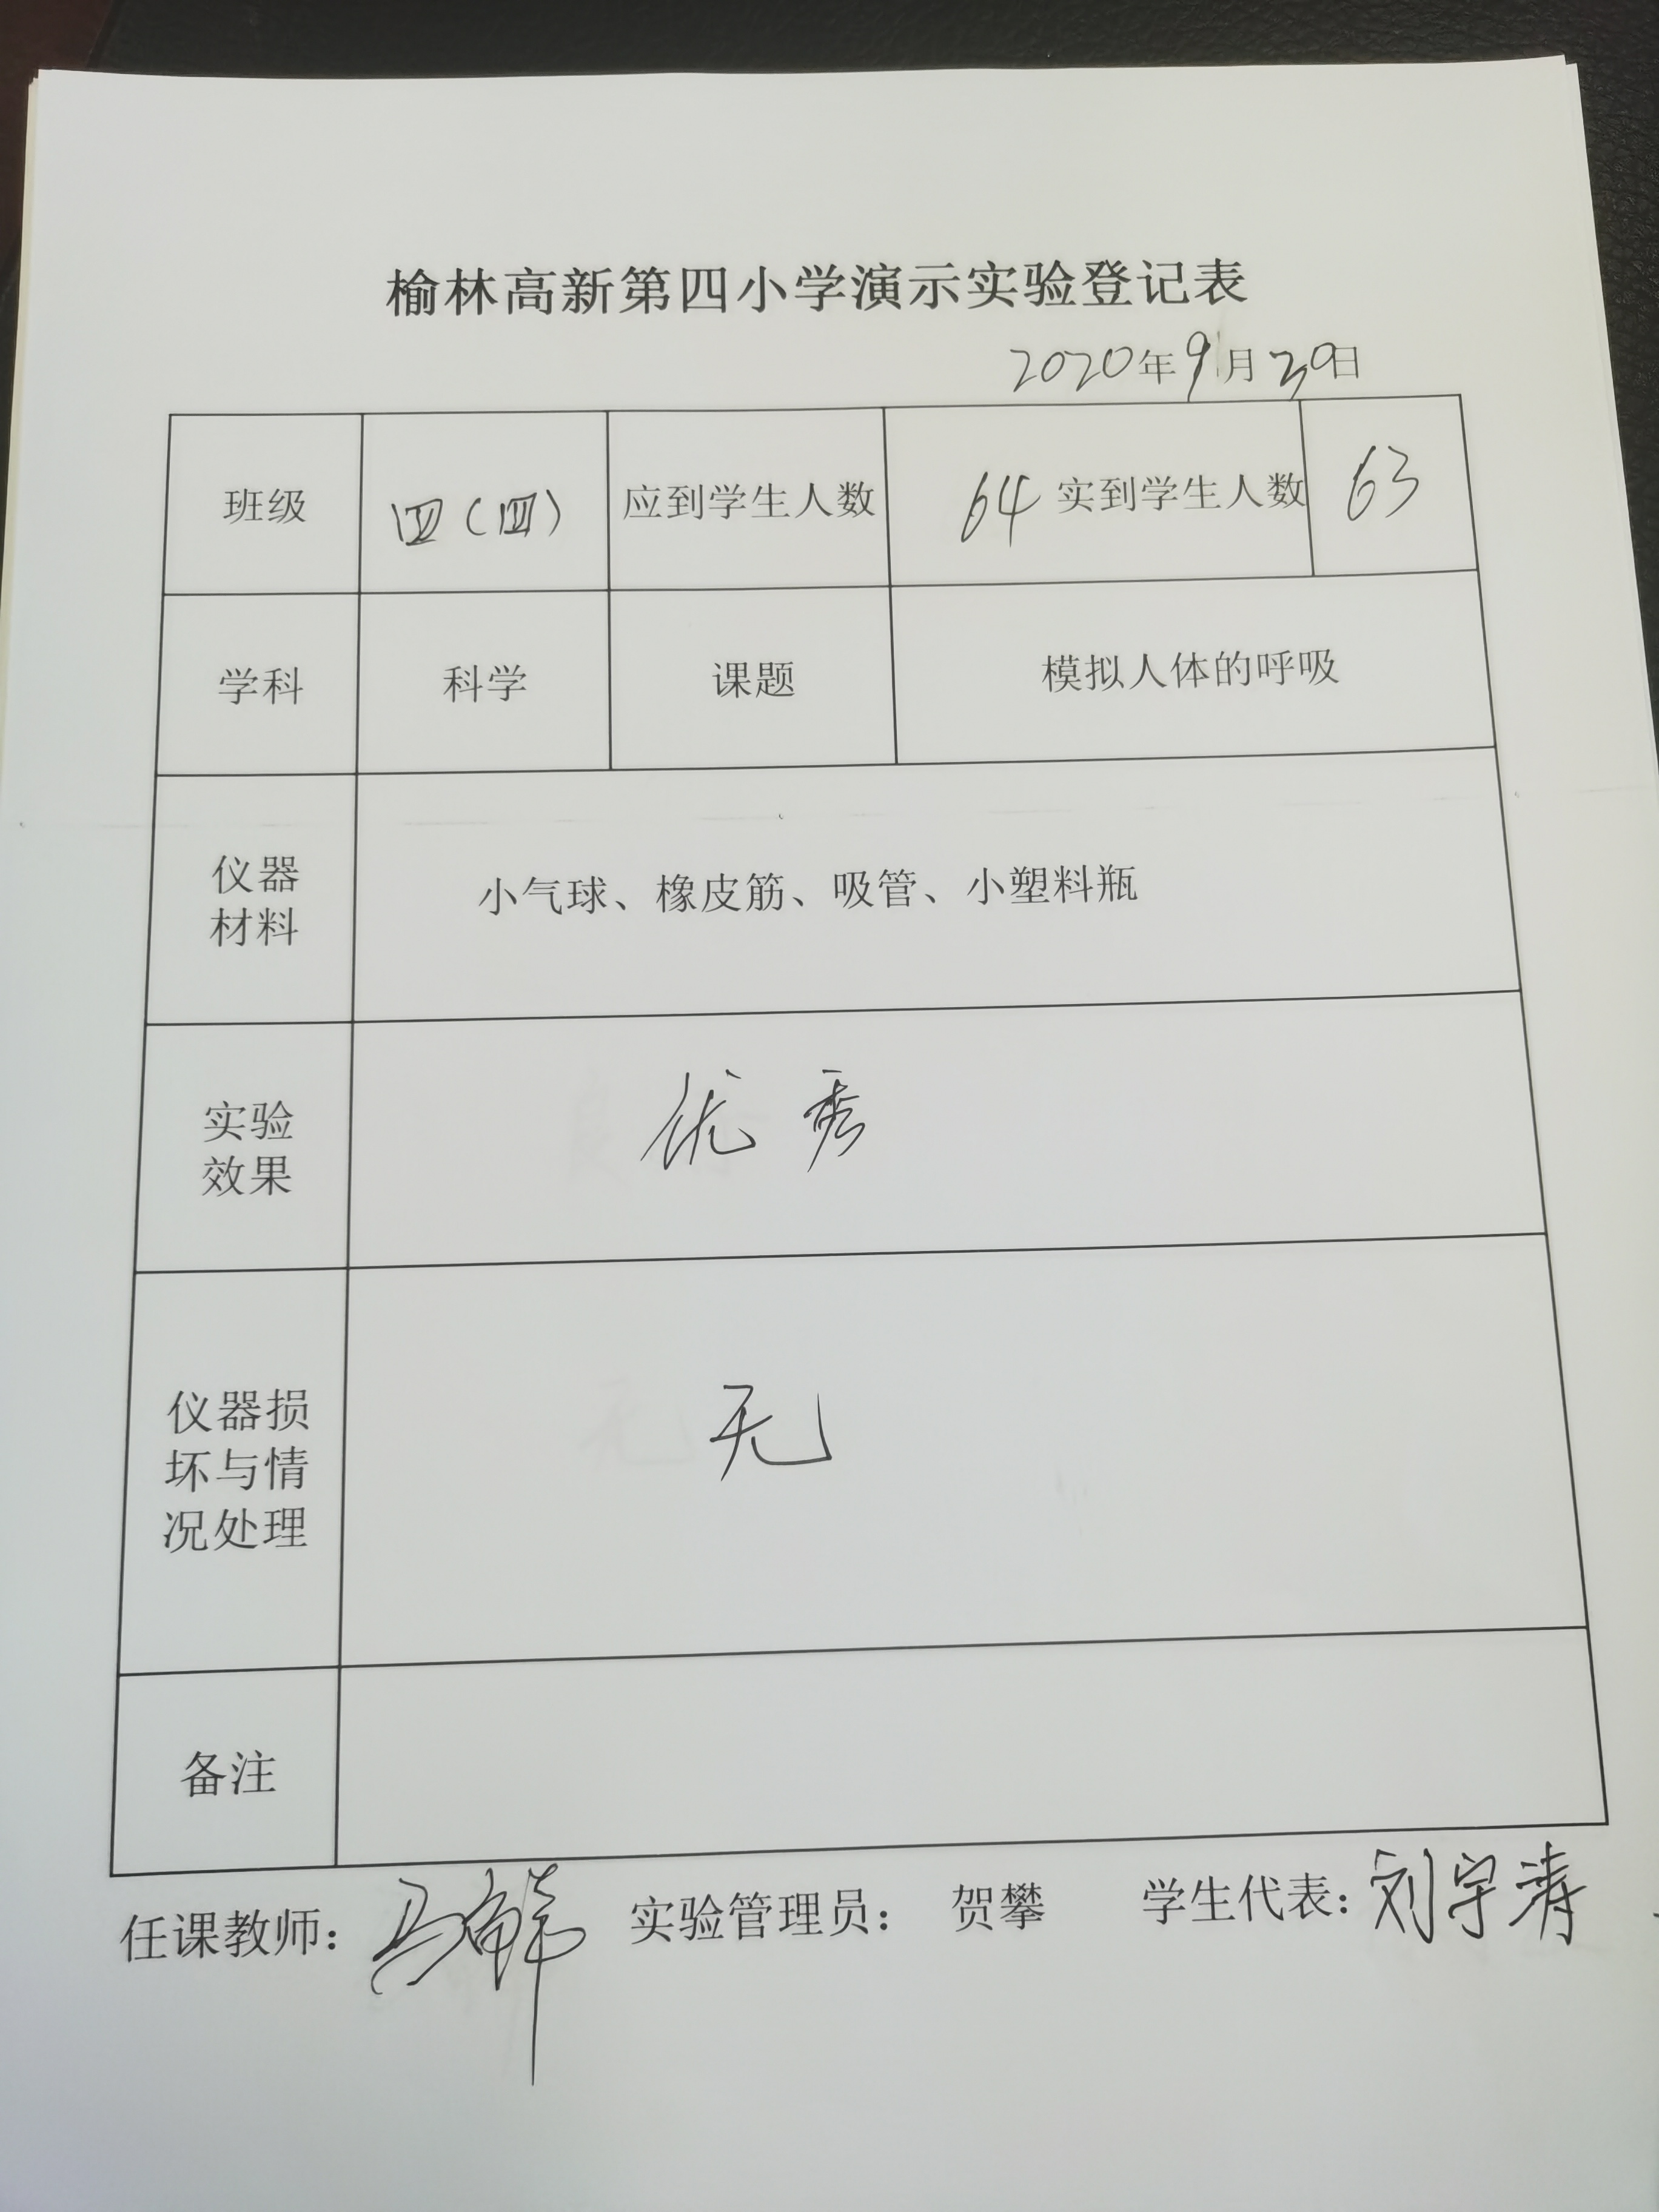 榆林高新第四小学演示实验登记表
2020年9月30日
班级 四（四） 应到学生人数 64 实到学生人数 63
学科 科学 课题 模拟人体的呼吸
仪器
材料
小气球、橡皮筋、吸管、小塑料瓶
实验
效果
优秀
仪器损
坏与情
况处理
无
备注
任课教师： 实验管理员： 贺攀 学生代表：刘宇清